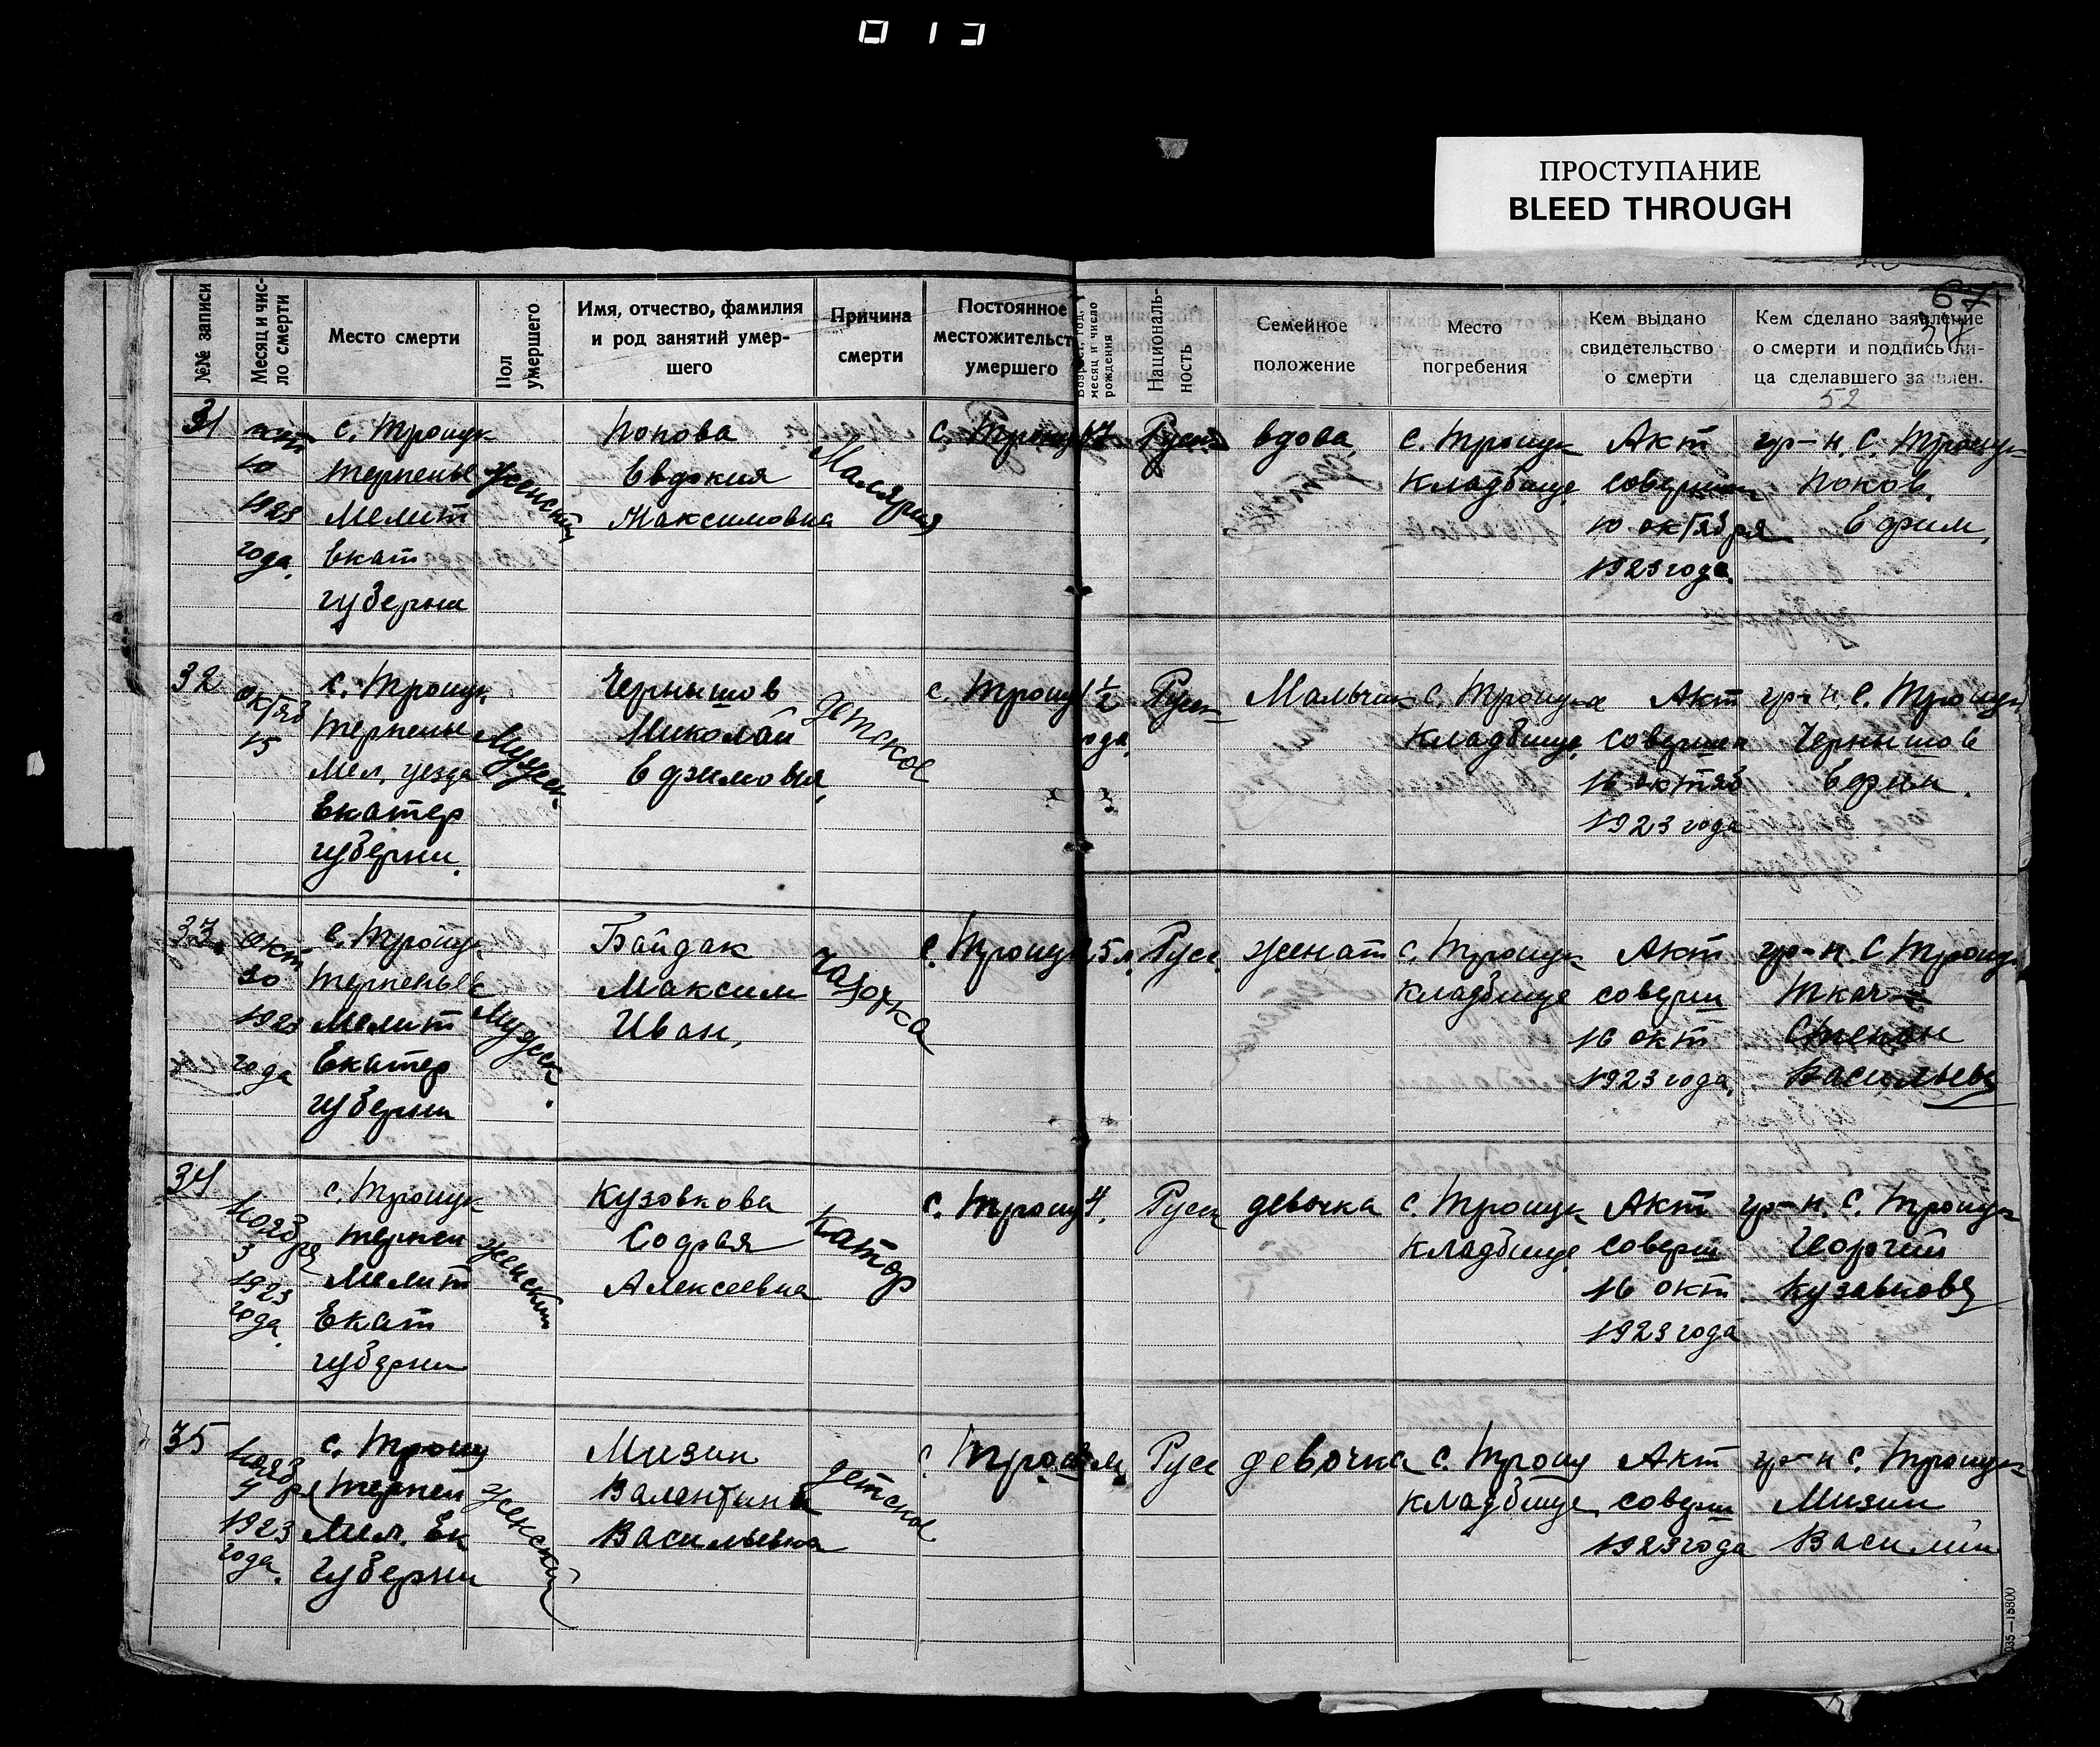 013
ПРОСТУПАНИЕ
BLEED THROUGH
№№ записи
Месяц и чис-
ло смерти
Место смерти
Пол
умершего
Имя, отчество, фамилия
и род занятий умер-
шего
Причина
смерти
Постоянное
местожительст
умершего
месяц и число
рождения
Националь-
ность
Семейное
положение
Место
погребения
Кем выдано
свидетельство
о смерти
Кем сделано заявление
о смерти и подпись ли-
ца сделавшего заявлен.
52
31
окт
10
1923
года.
с. Троицк
Терпенье
Мелит
Екат
губерни
женский
Попова
Евдокия
Максимовна
Малярия
с. Троицк
Русск
вдова
с. Троицк
Кладбище
Акт
совершон
10 октября
1923 года.
гр-н. с. Троицк
Попов.
Ефим.
32
октяб
15
с. Троицк
Терпенье
Мел. уезда
Екатер
губерни.
Мужск.
Чернышов
Николай
Ефимович
детское
с. Троиц
1 1/2
года
Русск
Мальчик
с. Троицк
Кладбище
Акт
соверши
16 октяб
1923 года
гр-н. с. Троицк
Чернышов
Ефим.
33.
окт
30
1923
года
с. Троицк
Терпенье
Мелит
Екатер
губерни
Мужск.
Байдак
Максим
Иван,
чахотка
с. Троицк
5 л.
Русс.
женат
с. Троицк
Кладбище
Акт
соверш
16 окт
1923 года,
гр-н. с Троицк
Ткач
Степан
Васильев
34
Ноября
3
1923
года.
с. Троицк
Терпен
Мелит
Екат
губерни
женский
Кузовкова
Софья
Алексеевна
Катор
с. Троиц
4.
Русск
девочка
с. Троицк
Кладбище
Акт
соверш
16 окт
1923 года
гр-н. с. Троицк
Георгий
Кузавков
35
Ноября
4
1923
года.
с. Троиц
Терпен
Мел. Ек
губерни
женский
Мизин
Валентина
Васильевна
детское
с. Трои
м
Русс
девочка
с. Троиц
Кладбище
Акт
соверш
1923 года
гр-н с. Троицк
Мизин
Василий
035—15800